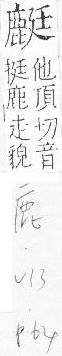 他頂切音
挺鹿走貌
鹿
.
V13
.
P.64